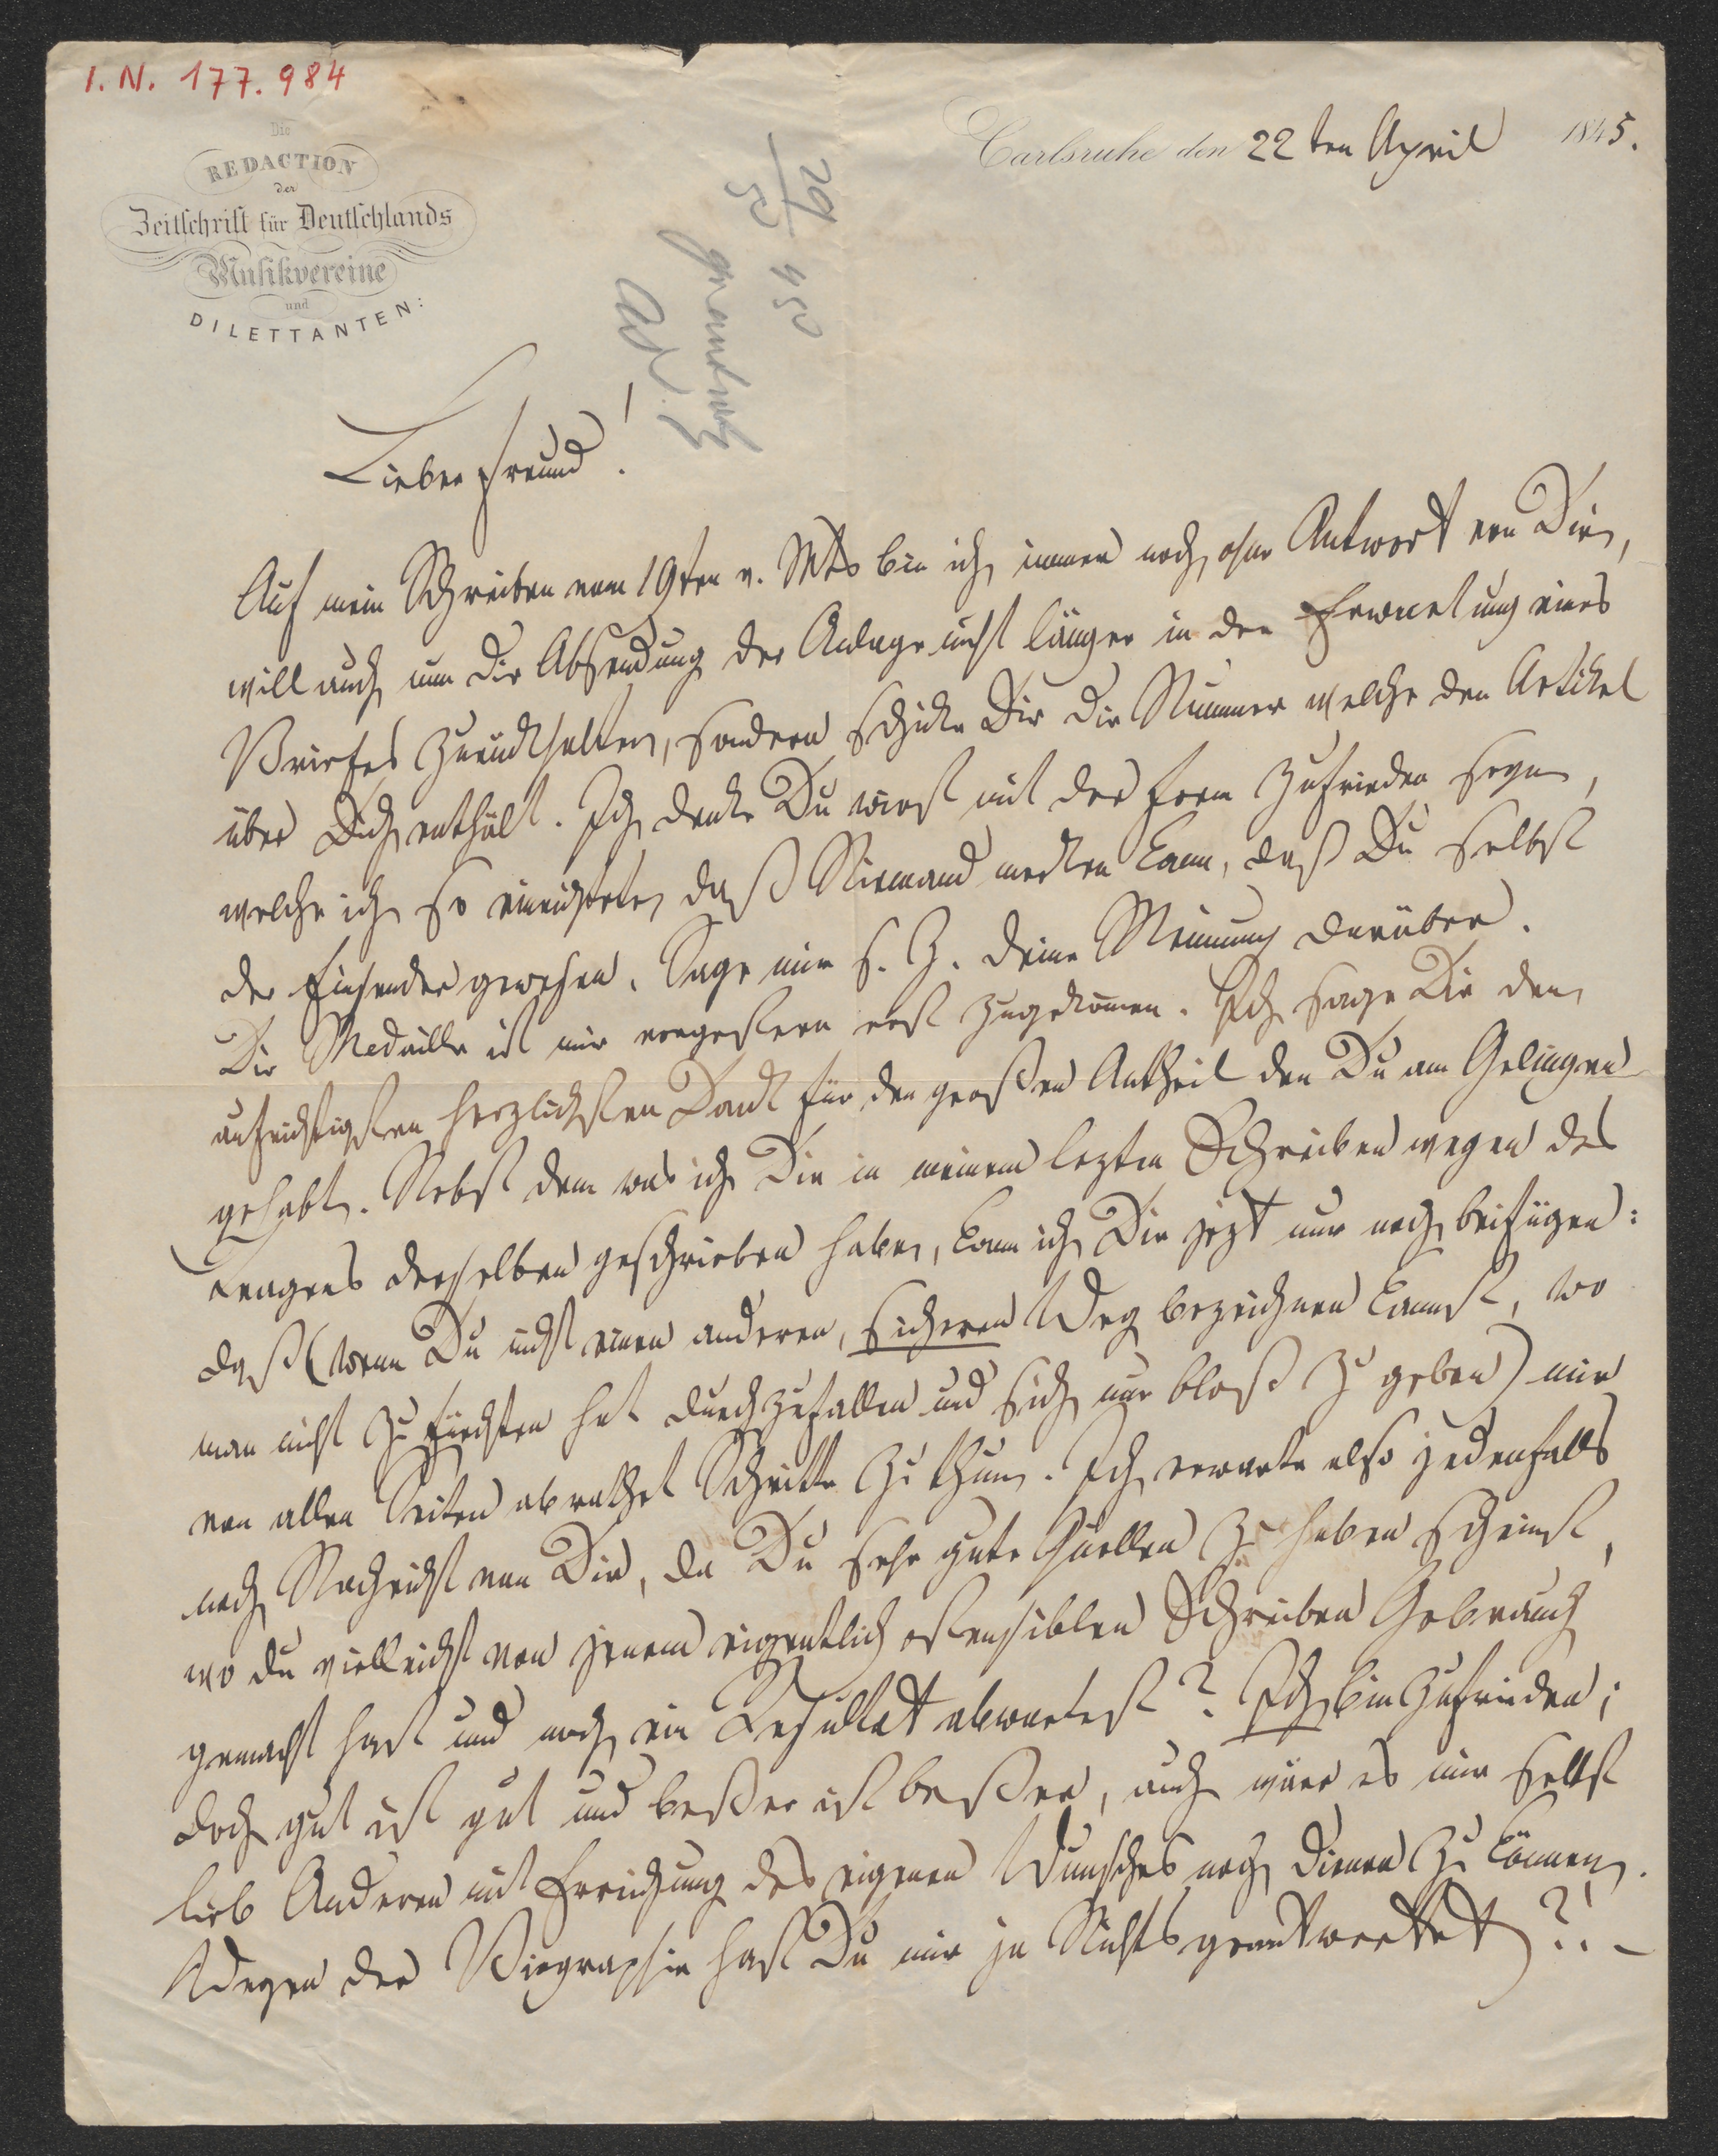 I. N. 177.984
Die
REDACTION
der
Zeitschrift für Deutschlands
Musikvereine
und
DILETTANTEN:
Carlsruhe den 22ten April 1845.
29
Lieber Freund!
Auf mein Schreiben vom 19ten v. Mts bin ich immer noch ohne Antwort von Dir,
will auch nun die Absendung der Anlage nicht länger in der Erwartung eines
Briefes zurückhalten, sondern schicke Dir die Nummer welche den Artikel
über Dich enthält. Ich denke Du wirst mit der Form zufrieden seyn,
welche ich so einrichtete, daß Niemand merken kann, daß Du selbst
der Einsender gewesen. Sage mir s. Z. Deine Meinung darüber.
Die Medaille ist mir vorgestern erst zugekommen. Ich sage Dir den
aufrichtigsten herzlichsten Dank für den großen Antheil den Du am Gelingen
gehabt. Nebst dem was ich Dir in meinem lezten Schreiben wegen des
Tragens derselben geschrieben habe, kann ich Dir jezt nur noch beifügen:
daß (wenn Du nicht einen anderen, sicheren Weg bezeichnen kannst, wo
man nicht zu fürchten hat durchzufallen und sich nur bloß zu geben) mir
von allen Seiten abrathet Schritte zu thun. Ich erwarte also jedenfalls
noch Nachricht von Dir, da Du sehr gute Quellen zu haben scheinst,
wo du vielleicht von jenem eigentlich ostensiblen Schreiben Gebrauch
gemacht hast und noch ein Resultat abwartest? Ich bin zufrieden;
doch gut ist gut und beßer ist beßer, auch wäre es mir selbst
lieb Anderen mit Erreichung des eigenen Wunsches noch dienen zu können.
Wegen der Biographie hast Du mir ja Nichts geantwortet?! –